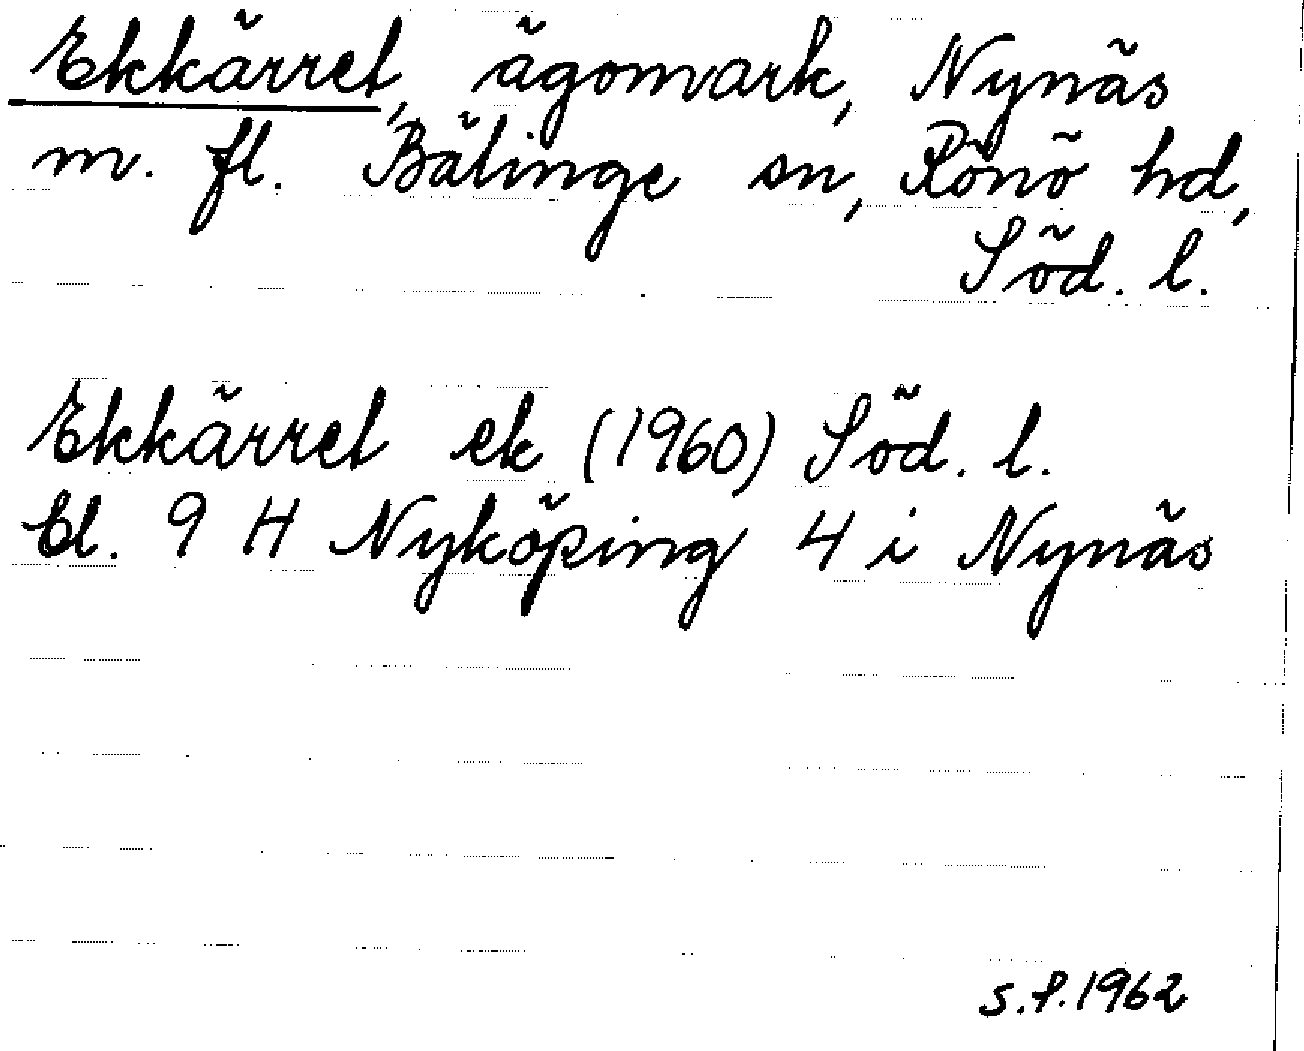 Ekkärret, ägomark, Nynäs
m. fl. Bälinge sn, Rönö hd,
Söd. l.
Ekkärret ek (1960) Söd. l.
Bl. 9 H Nyköping 4 i Nynäs
S.P. 1962